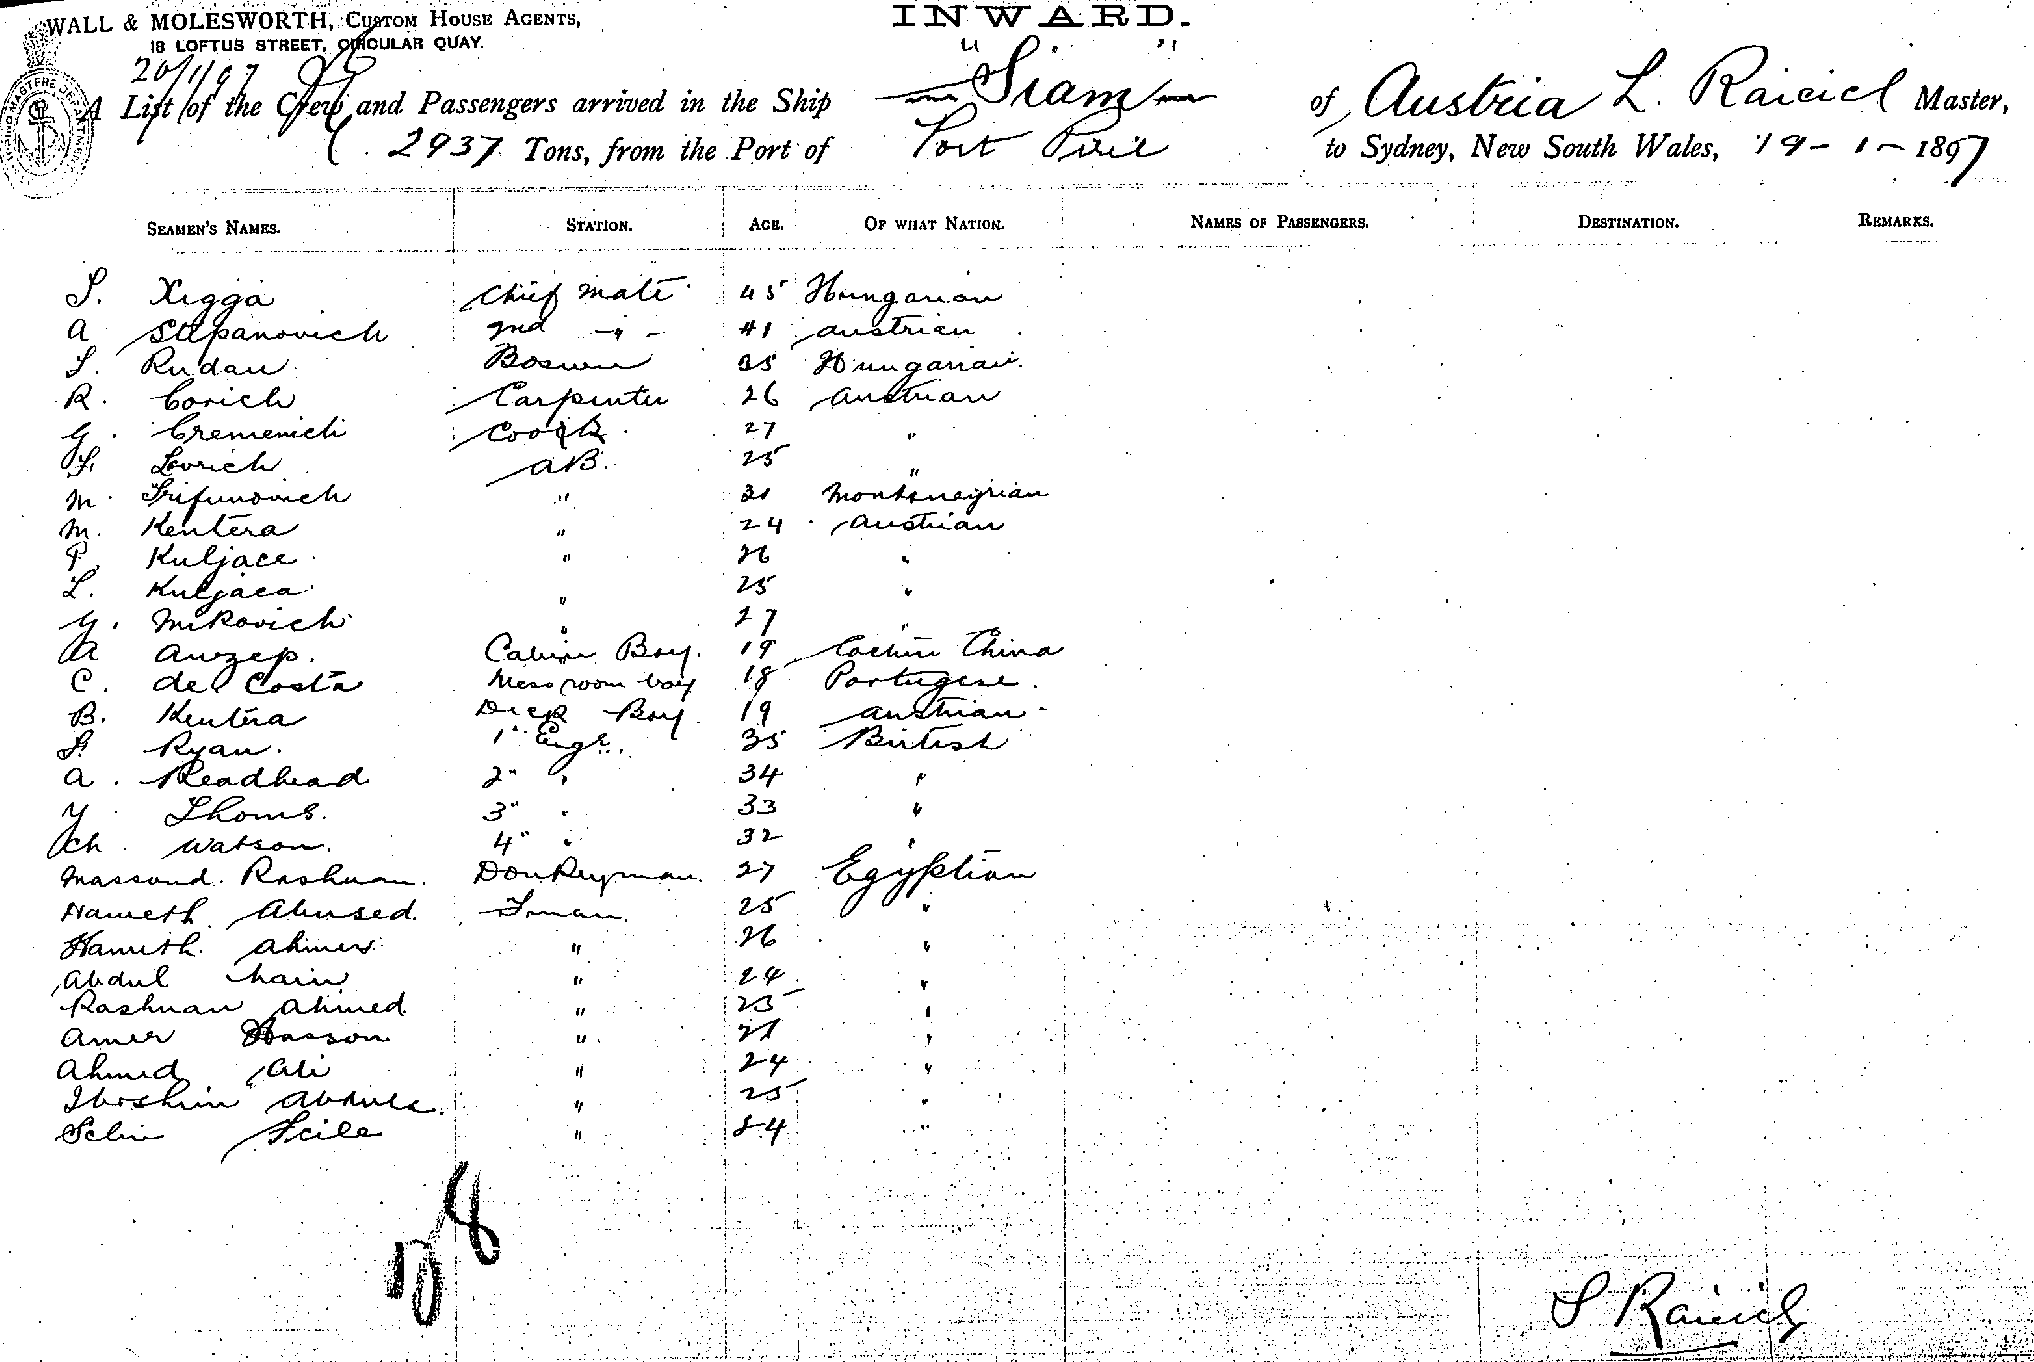 WALL & MOLESWORTH, CUSTOM HOUSE AGENTS,
18 LOFTUS STREET, CIRCULAR QUAY.
INWARD.
20/1/07
A List of the Crew and Passengers arrived in the Ship "Siam" of Austria L. Raicich Master,
2937 Tons, from the Port of Port Pirie to Sydney, New South Wales, 19-1-1897
SEAMEN'S NAMES. STATION. AGE. OF WHAT NATION. NAMES OF PASSENGERS. DESTINATION. REMARKS.
S. Xigga Chief Mate 45 Hungarian
A Stepanovich 2nd -"- 41 Austrian
S. Rudan Boswn 35 Hungarian
R. Corich Carpenter 26 Austrian
G. Cremenich Cook 27 "
Lovrich AB. 25 "
M. Trifunovich " 31 Montenegrian
M. Kentera " 24 Austrian
P. Kuljace " 26 "
L. Kuljaca " 25 "
G. Mikovich " 27 "
A Anzep. Cabin Boy. 19 Cochin China
C. de Costa Mess room boy 18 Portugese.
B. Kentera Deck Boy 19 Austrian
Ryan. 1" Engr. 35 British
A. Readhead 2" " 34 "
Y Thoms. 3" " 33 "
Ch. Watson. 4" " 32 "
Massoud. Rashman. Donkeyman. 27 Egyptian
Hameth Abused. Fman. 25 "
Hameth. Ahmer " 26 "
Abdul Nain " 24 "
Rashman Ahmed " 25 "
Amer Hasson " 21 "
Ahmed Ali " 24 "
Ibrshim Abdula. " 25 "
Selim " 24 "
S Raicich